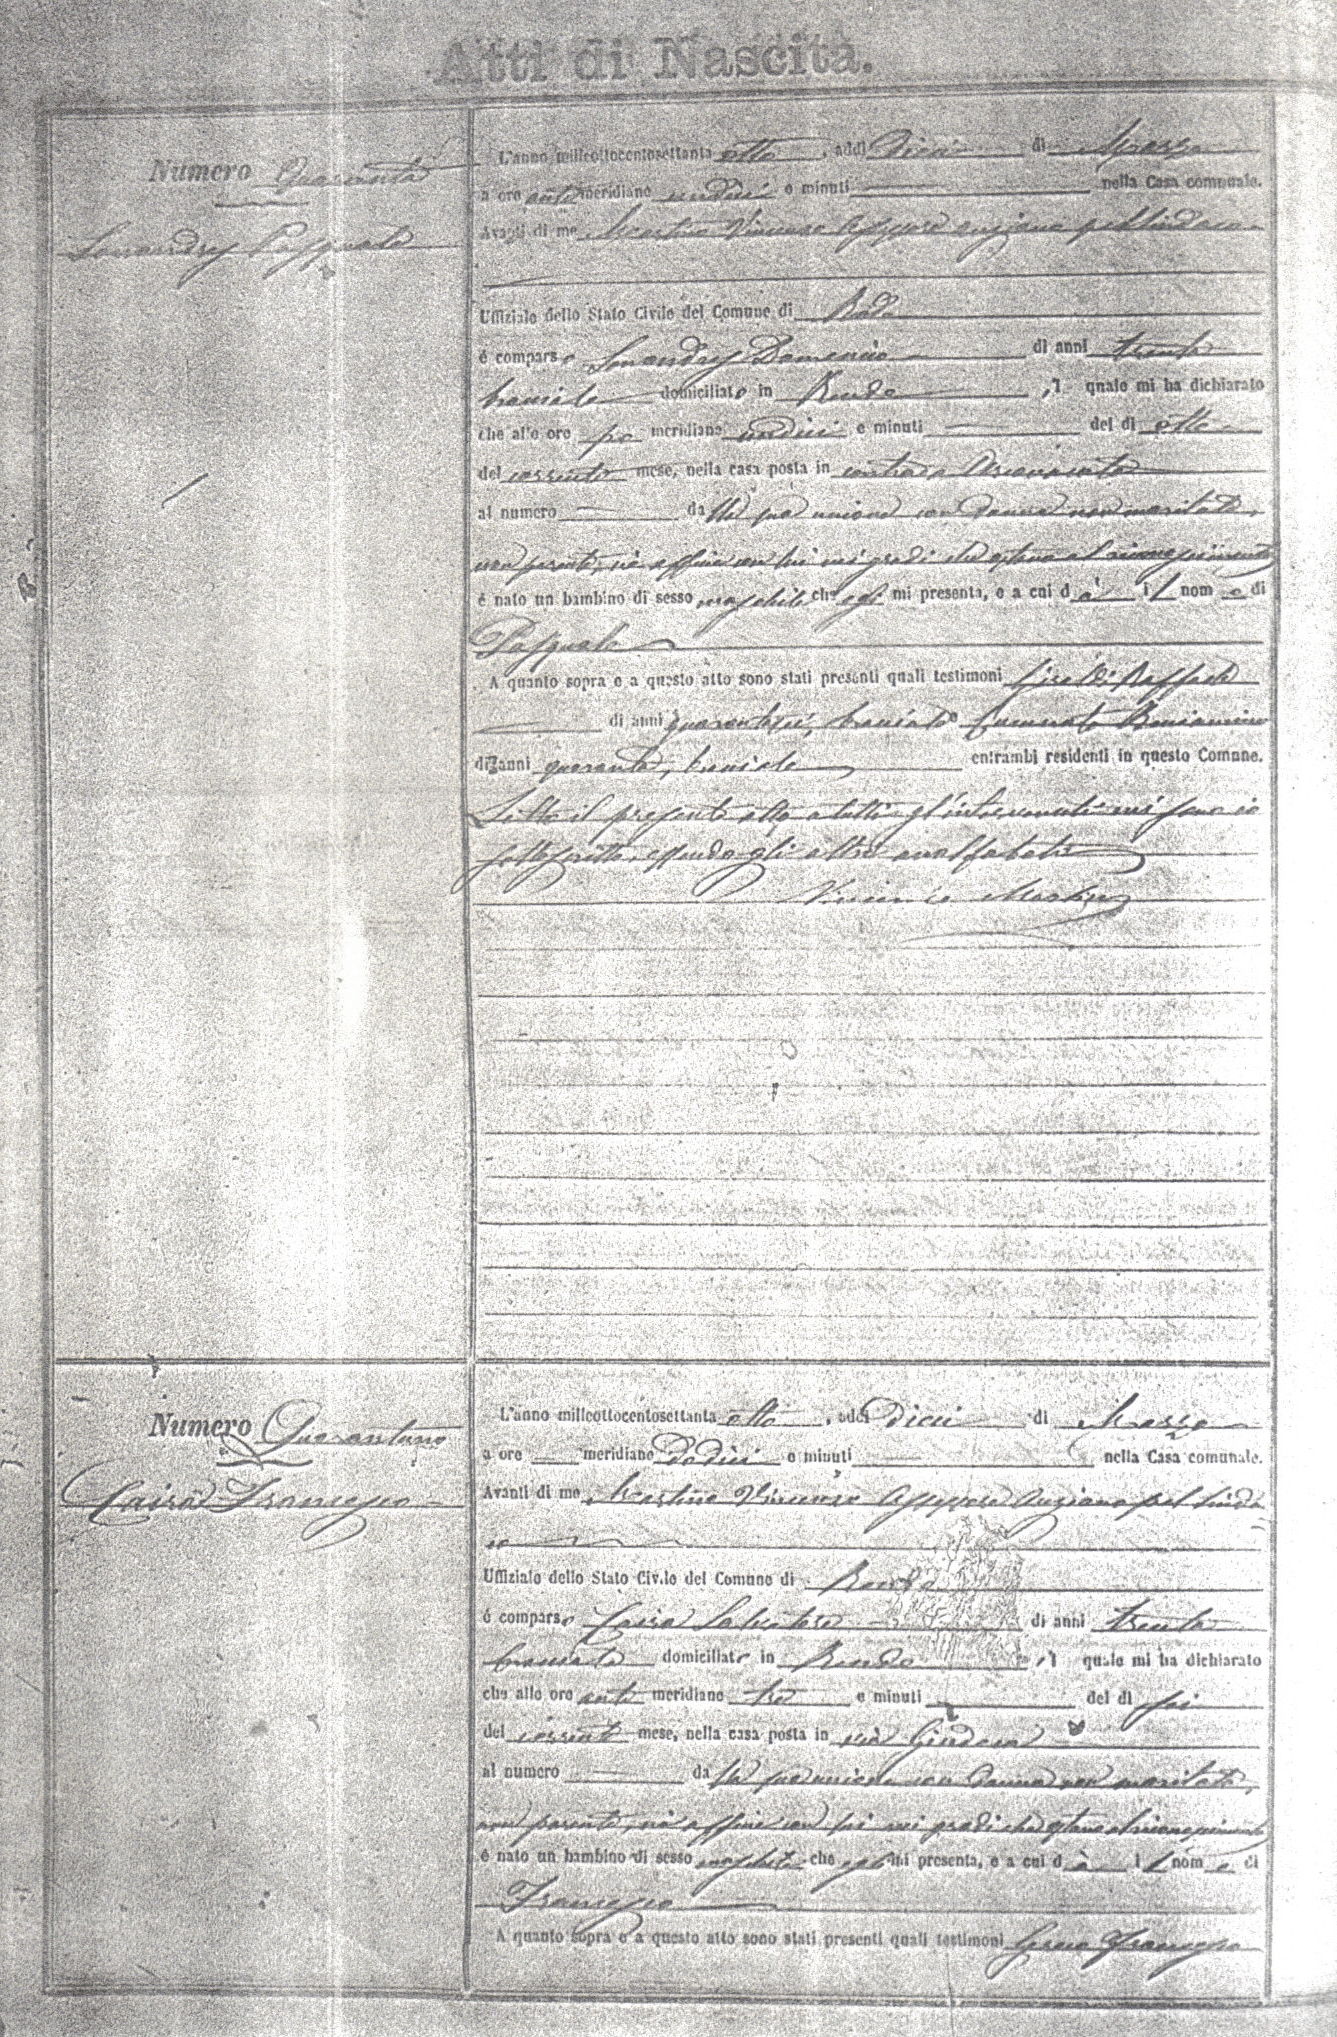 Atti di Nascita.
Numero Quaranta
Pasquale
L'anno millottocentosettanta otto, addì Dieci di Marzo
a ore antemeridiane undici e minuti nella Casa comunale.
Avanti di me Martino Vincenzo Assessore anziano pel Sindaco
Uffiziale dello Stato Civile del Comune di
è comparso Domenico di anni trenta
bracciale domiciliato in Rende, il quale mi ha dichiarato
che alle ore po meridiane undici e minuti del dì otto
del corrente mese, nella casa posta in contrada
al numero dalla sua unione con donna non maritata,
non parente, nè affine con lui nei gradi che ostano al riconoscimento
è nato un bambino di sesso maschile che egli mi presenta, e a cui dà il nome di
Pasquale
A quanto sopra e a questo atto sono stati presenti quali testimoni Raffaele
di anni bracciale Beniamino
di anni quaranta, bracciale entrambi residenti in questo Comune.
Letto il presente atto a tutti gl'intervenuti mi sono io
sottoscritto, essendo gli altri analfabeti
Vincenzo Martino
Numero Quarantuno
Cairà Francesco
L'anno millottocentosettanta otto, addì dieci di Marzo
a ore meridiane Dodici e minuti nella Casa comunale.
Avanti di me Martino Vincenzo Assessore Anziano pel Sinda
co
Uffiziale dello Stato Civile del Comune di Rende
è comparso Cairà Salvatore di anni trenta
bracciale domiciliato in Rende, il quale mi ha dichiarato
che alle ore ante meridiane tre e minuti del dì sei
del corrente mese, nella casa posta in via
al numero dalla sua unione con donna non maritata,
non parente, nè affine con lui nei gradi che ostano al riconoscimento
è nato un bambino di sesso maschile che egli mi presenta, e a cui dà il nome di
Francesco
A quanto sopra e a questo atto sono stati presenti quali testimoni Greco Francesco